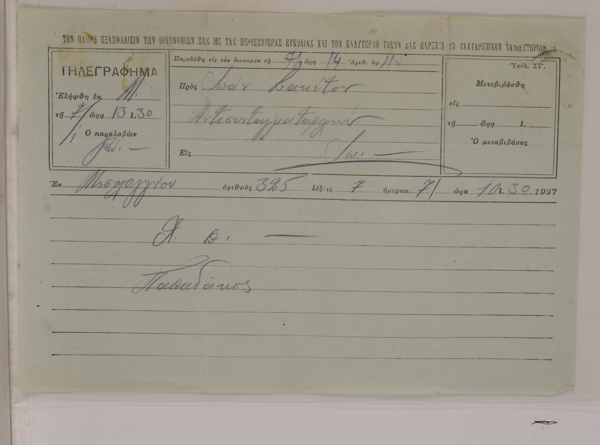 ΤΗΝ ΠΛΗΡΗ ΕΞΑΣΦΑΛΙΣΙΝ ΤΩΝ ΟΙΚΟΝΟΜΙΩΝ ΣΑΣ ΜΕ ΤΑΣ ΠΕΡΙΣΣΟΤΕΡΑΣ ΕΥΚΟΛΙΑΣ ΚΑΙ ΤΟΝ ΚΑΛΥΤΕΡΟΝ ΤΟΚΟΝ ΣΑΣ ΠΑΡΕΧΕΙ ΤΟ ΤΑΧΥΔΡΟΜΙΚΟΝ ΤΑΜΙΕΥΤΗΡΙΟΝ
ΤΗΛΕΓΡΑΦΗΜΑ
Ἐλήφθη ἐκ
τῇ 7/ ὥρᾳ 13 λ. 30
Ὁ παραλαβὼν
Παρεδόθη εἰς τὸν διανομέα τῇ 7/ ὥρᾳ 14 Ἀριθ. ἀπ.
Πρὸς
Ἀντισυνταγματάρχην
Εἰς
Ὑπόδ. ΣΤ΄.
Μετεβιβάσθη
εἰς
τῇ ὥρᾳ λ.
Ὁ μεταβιβάσας
Ἐκ Μεσολογγίου ἀριθμὸς 325 λέξεις 7 ἡμερομ. 7/ ὥρα 10 λ. 30 1927
Χ. Π.
Παπαδάκος